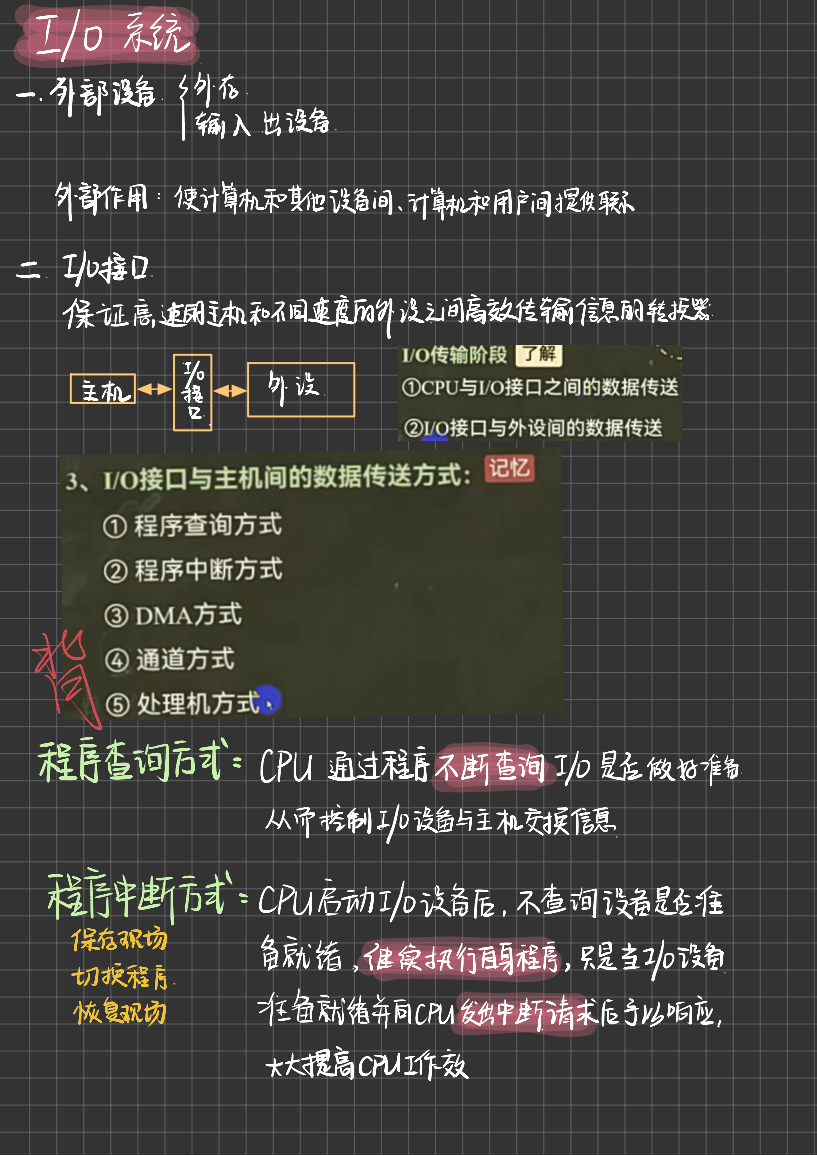 I/O 系统
一. 外部设备 { 外存
输入出设备
外部作用：使计算机和其他设备间、计算机和用户间提供联系
二. I/O接口
保证高速用主机和不同速度的外设之间高效传输信息的转换器
主机
I/O接口
外设
I/O传输阶段 了解
①CPU与I/O接口之间的数据传送
②I/O接口与外设间的数据传送
3、I/O接口与主机间的数据传送方式： 记忆
① 程序查询方式
② 程序中断方式
③ DMA方式
④ 通道方式
⑤ 处理机方式
程序查询方式：CPU 通过程序不断查询 I/O 是否做好准备
从而控制I/O设备与主机交换信息
程序中断方式：CPU启动I/O设备后，不查询设备是否准
备就绪，继续执行自身程序，只是当I/O设备
准备就绪并向CPU发出中断请求后予以响应，
大大提高CPU工作效
保存现场
切换程序
恢复现场